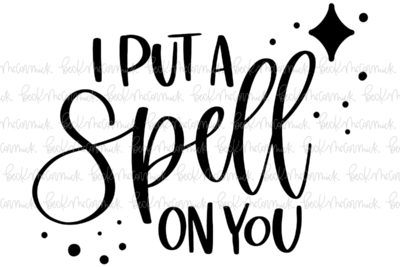 I PUT A
Spell
ON YOU